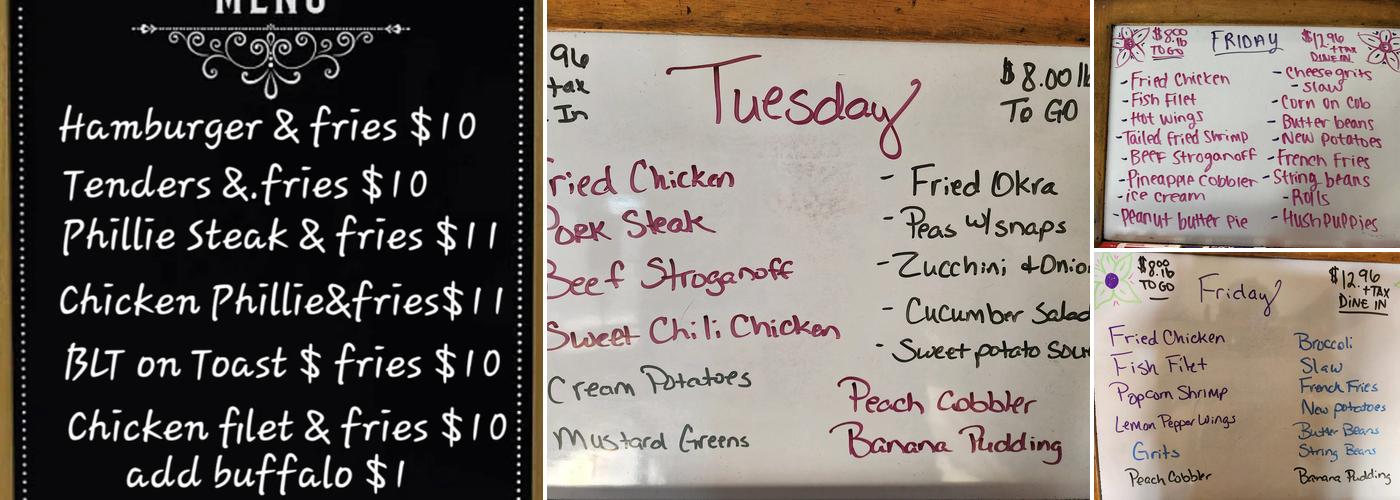 MENU
Hamburger & fries $10
Tenders &.fries $10
Phillie Steak & fries $11
Chicken Phillie&fries$11
BLT on Toast $ fries $10
Chicken filet & fries $10
add buffalo $1
96
tax
In
Tuesday
$8.00 lb
TO GO
ried Chicken
Pork Steak
Beef Stroganoff
Sweet Chili Chicken
Cream Potatoes
Mustard Greens
- Fried Okra
- Peas w/snaps
- Zucchini + Onio
- Cucumber Salad
- Sweet potato Sou
Peach Cobbler
Banana Pudding
$8.00
lb
TO GO
FRIDAY
$12.96
+TAX
DINE IN
- Fried Chicken
- Fish Filet
- Hot wings
- Tailed fried Shrimp
- BEEF Stroganoff
- Pineapple Cobbler
- ice cream
- Peanut butter Pie
- Cheese grits
- Slaw
- Corn on Cob
- Butter beans
- New Potatoes
- French Fries
- String beans
- Rolls
- Hush Puppies
$8.00
lb
TO GO
Friday
$12.96
+TAX
DINE IN
Fried Chicken
Fish Filet
Popcorn Shrimp
Lemon Pepper Wings
Grits
Peach Cobbler
Broccoli
Slaw
French Fries
New potatoes
Butter Beans
String Beans
Banana Pudding